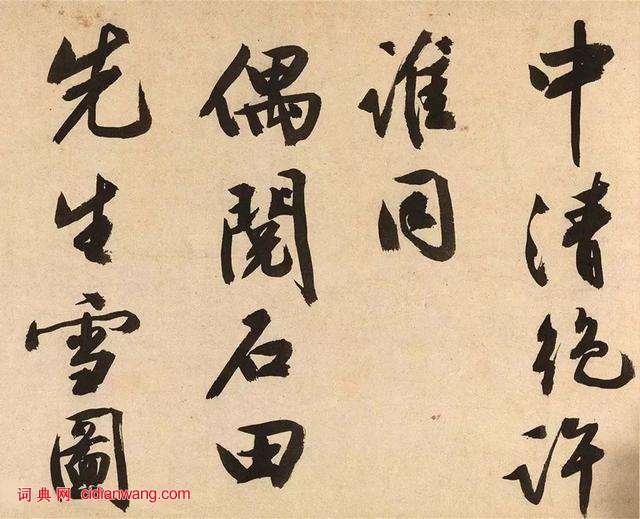 中清絶許
誰同
偶閱石田
先生雪圖
词典网 cidianwang.com